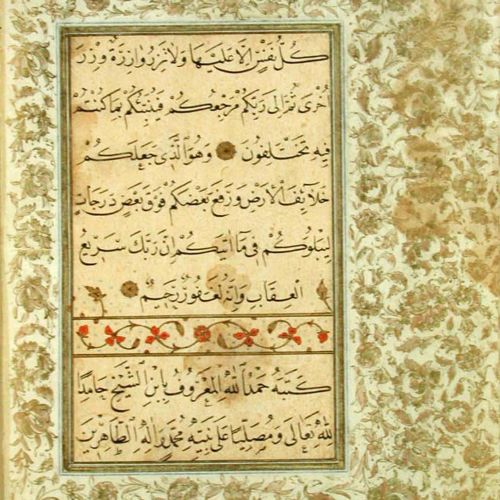 كُلُّ نَفْسٍ اِلَّا عَلَيْهَا وَلَا تَزِرُ وَازِرَةٌ وِزْرَ
اُخْرٰى ثُمَّ اِلٰى رَبِّكُمْ مَرْجِعُكُمْ فَيُنَبِّئُكُمْ بِمَا كُنْتُمْ
فِيهِ تَخْتَلِفُونَ وَهُوَ الَّذِي جَعَلَكُمْ
خَلَائِفَ الْاَرْضِ وَرَفَعَ بَعْضَكُمْ فَوْقَ بَعْضٍ دَرَجَاتٍ
لِيَبْلُوَكُمْ فِي مَا اٰتٰيكُمْ اِنَّ رَبَّكَ سَرِيعُ
الْعِقَابِ وَاِنَّهُ لَغَفُورٌ رَحِيمٌ
كَتَبَهُ حَمْدُ اللهِ الْمَعْرُوفُ بِابْنِ الشَّيْخِ حَامِدًا
لِلّٰهِ تَعَالٰى وَمُصَلِّيًا عَلٰى نَبِيِّهِ مُحَمَّدٍ وَاٰلِهِ الطَّاهِرِينَ